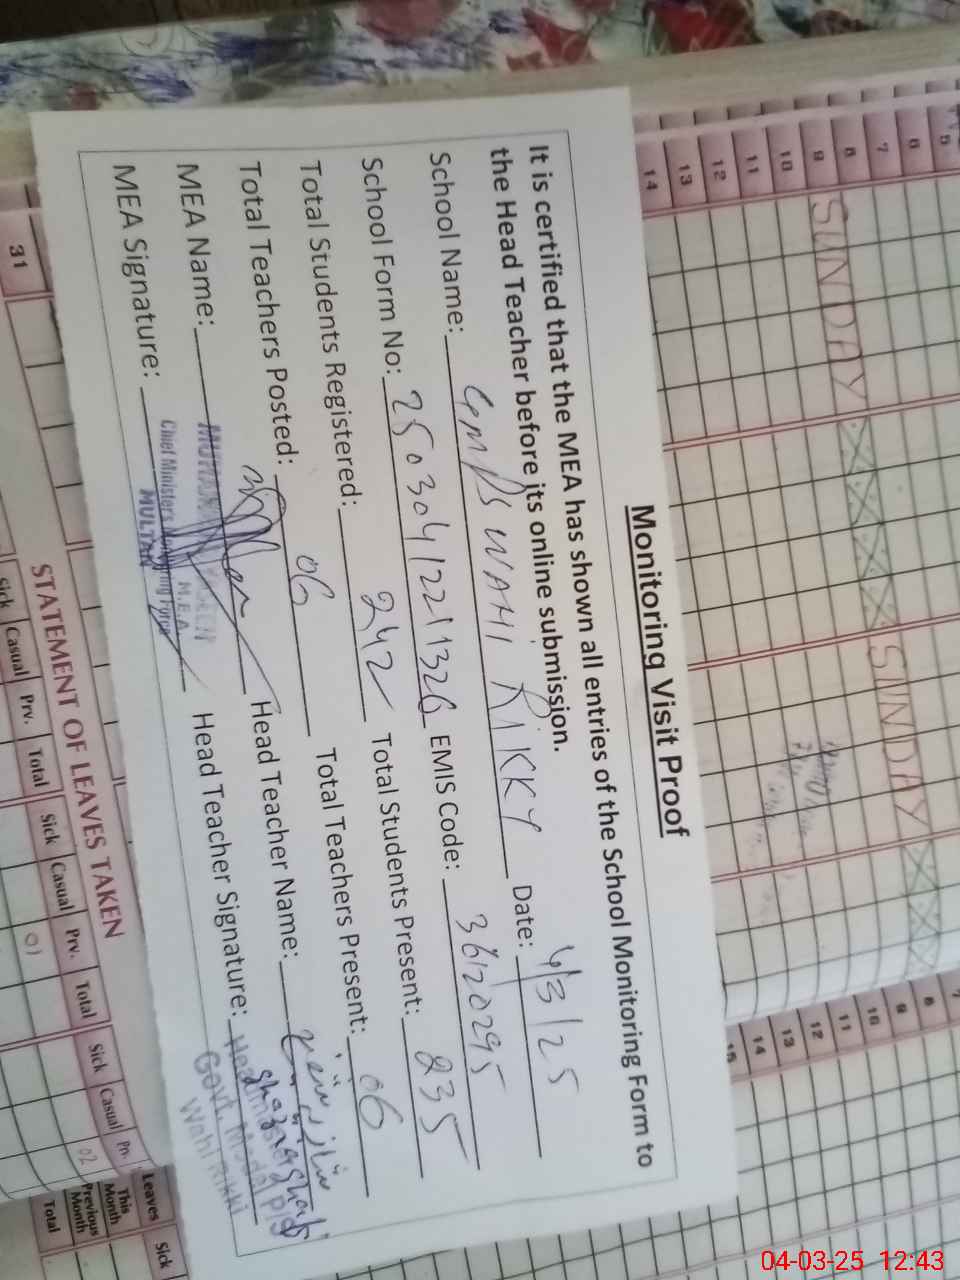 Monitoring Visit Proof
It is certified that the MEA has shown all entries of the School Monitoring Form to
the Head Teacher before its online submission.
School Name: GMPS WAHI RIKKY Date: 4/3/25
School Form No: 25030412211326 EMIS Code: 36120295
Total Students Registered: 242 Total Students Present: 235
Total Teachers Posted: 06 Total Teachers Present: 06
MEA Name: Head Teacher Name:
MEA Signature: Head Teacher Signature:
M.E.A
Chief Ministers Monitoring Force
MULTAN
Govt. Model P/S
Wahi Rikki
SUNDAY
SUNDAY
5
6
7
8
9
10
11
12
13
14
31
8
9
10
11
12
13
14
15
STATEMENT OF LEAVES TAKEN
Sick Casual Prv. Total Sick Casual Prv. Total Sick Casual
01
02
Leaves
This Month
Previous Month
Total
Sick
04-03-25 12:43